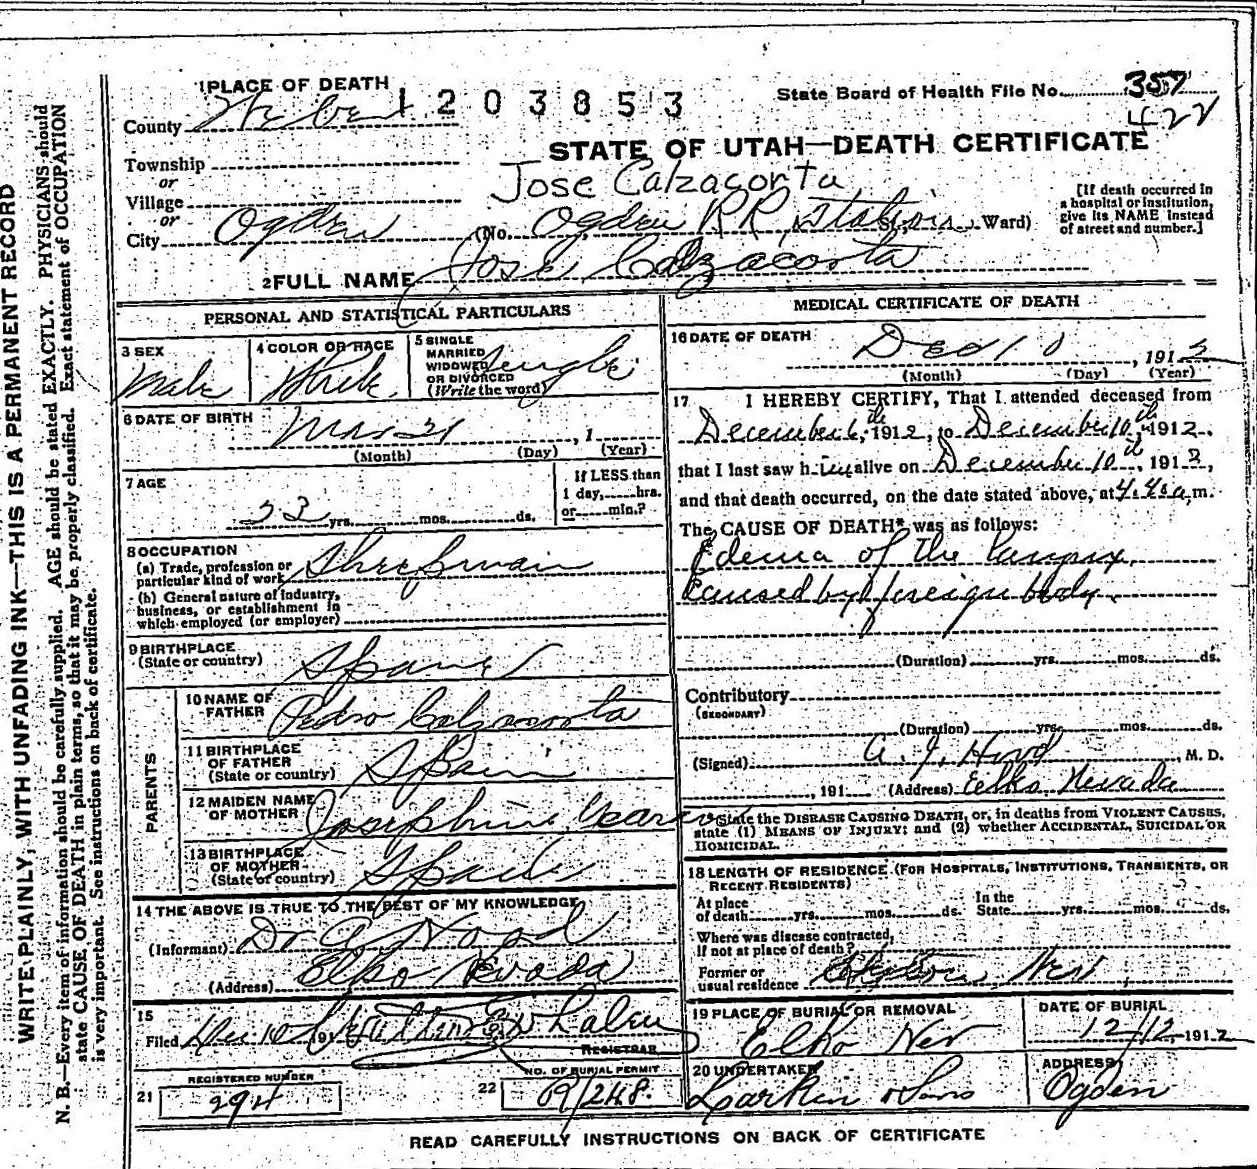 1 PLACE OF DEATH
1203853
State Board of Health File No. 357
422
County Weber
STATE OF UTAH—DEATH CERTIFICATE
Township
or
Jose Calzacorta
Village
or
City Ogden (No. Ogden RR Station St., Ward)
[If death occurred in
a hospital or institution,
give its NAME instead
of street and number.]
2 FULL NAME Jose Calzacorta
PERSONAL AND STATISTICAL PARTICULARS
3 SEX
Male
4 COLOR OR RACE
White
5 SINGLE
MARRIED
WIDOWED
OR DIVORCED
(Write the word)
Single
6 DATE OF BIRTH
Mar 21, 1
(Month) (Day) (Year)
7 AGE
23 yrs. mos. ds.
If LESS than
1 day, hrs.
or min.?
8 OCCUPATION
(a) Trade, profession or
particular kind of work Sheepman
(b) General nature of industry,
business, or establishment in
which employed (or employer)
9 BIRTHPLACE
(State or country) Spain
PARENTS
10 NAME OF
FATHER Pedro Calzacorta
11 BIRTHPLACE
OF FATHER
(State or country) Spain
12 MAIDEN NAME
OF MOTHER Josephine
13 BIRTHPLACE
OF MOTHER
(State or country) Spain
14 THE ABOVE IS TRUE TO THE BEST OF MY KNOWLEDGE
(Informant) Dr
(Address) Elko Nevada
15
Filed Dec 10 191
REGISTRAR
REGISTERED NUMBER
21 294
NO. OF BURIAL PERMIT
22 R/248.
MEDICAL CERTIFICATE OF DEATH
16 DATE OF DEATH
Dec 10, 1912
(Month) (Day) (Year)
17 I HEREBY CERTIFY, That I attended deceased from
December 6th, 1912, to December 10th, 1912,
that I last saw him alive on December 10th, 1912,
and that death occurred, on the date stated above, at 4.40 a.m.
The CAUSE OF DEATH* was as follows:
Edema of the larynx
Caused by foreign body.
(Duration) yrs. mos. ds.
Contributory
(SECONDARY)
(Duration) yrs. mos. ds.
(Signed) A. J. Hood M. D.
, 191 (Address) Elko Nevada
*State the DISEASE CAUSING DEATH, or, in deaths from VIOLENT CAUSES,
state (1) MEANS OF INJURY; and (2) whether ACCIDENTAL, SUICIDAL OR
HOMICIDAL.
18 LENGTH OF RESIDENCE (FOR HOSPITALS, INSTITUTIONS, TRANSIENTS, OR
RECENT RESIDENTS)
At place
of death yrs. mos. ds.
In the
State yrs. mos. ds.
Where was disease contracted,
if not at place of death?
Former or
usual residence Nev
19 PLACE OF BURIAL OR REMOVAL
Elko Nev
DATE OF BURIAL
12/12, 1912
20 UNDERTAKER
Larkin & Sons
ADDRESS
Ogden
READ CAREFULLY INSTRUCTIONS ON BACK OF CERTIFICATE
WRITE PLAINLY, WITH UNFADING INK—THIS IS A PERMANENT RECORD
N. B.—Every item of information should be carefully supplied. AGE should be stated EXACTLY. PHYSICIANS should
state CAUSE OF DEATH in plain terms, so that it may be properly classified. Exact statement of OCCUPATION
is very important. See instructions on back of certificate.